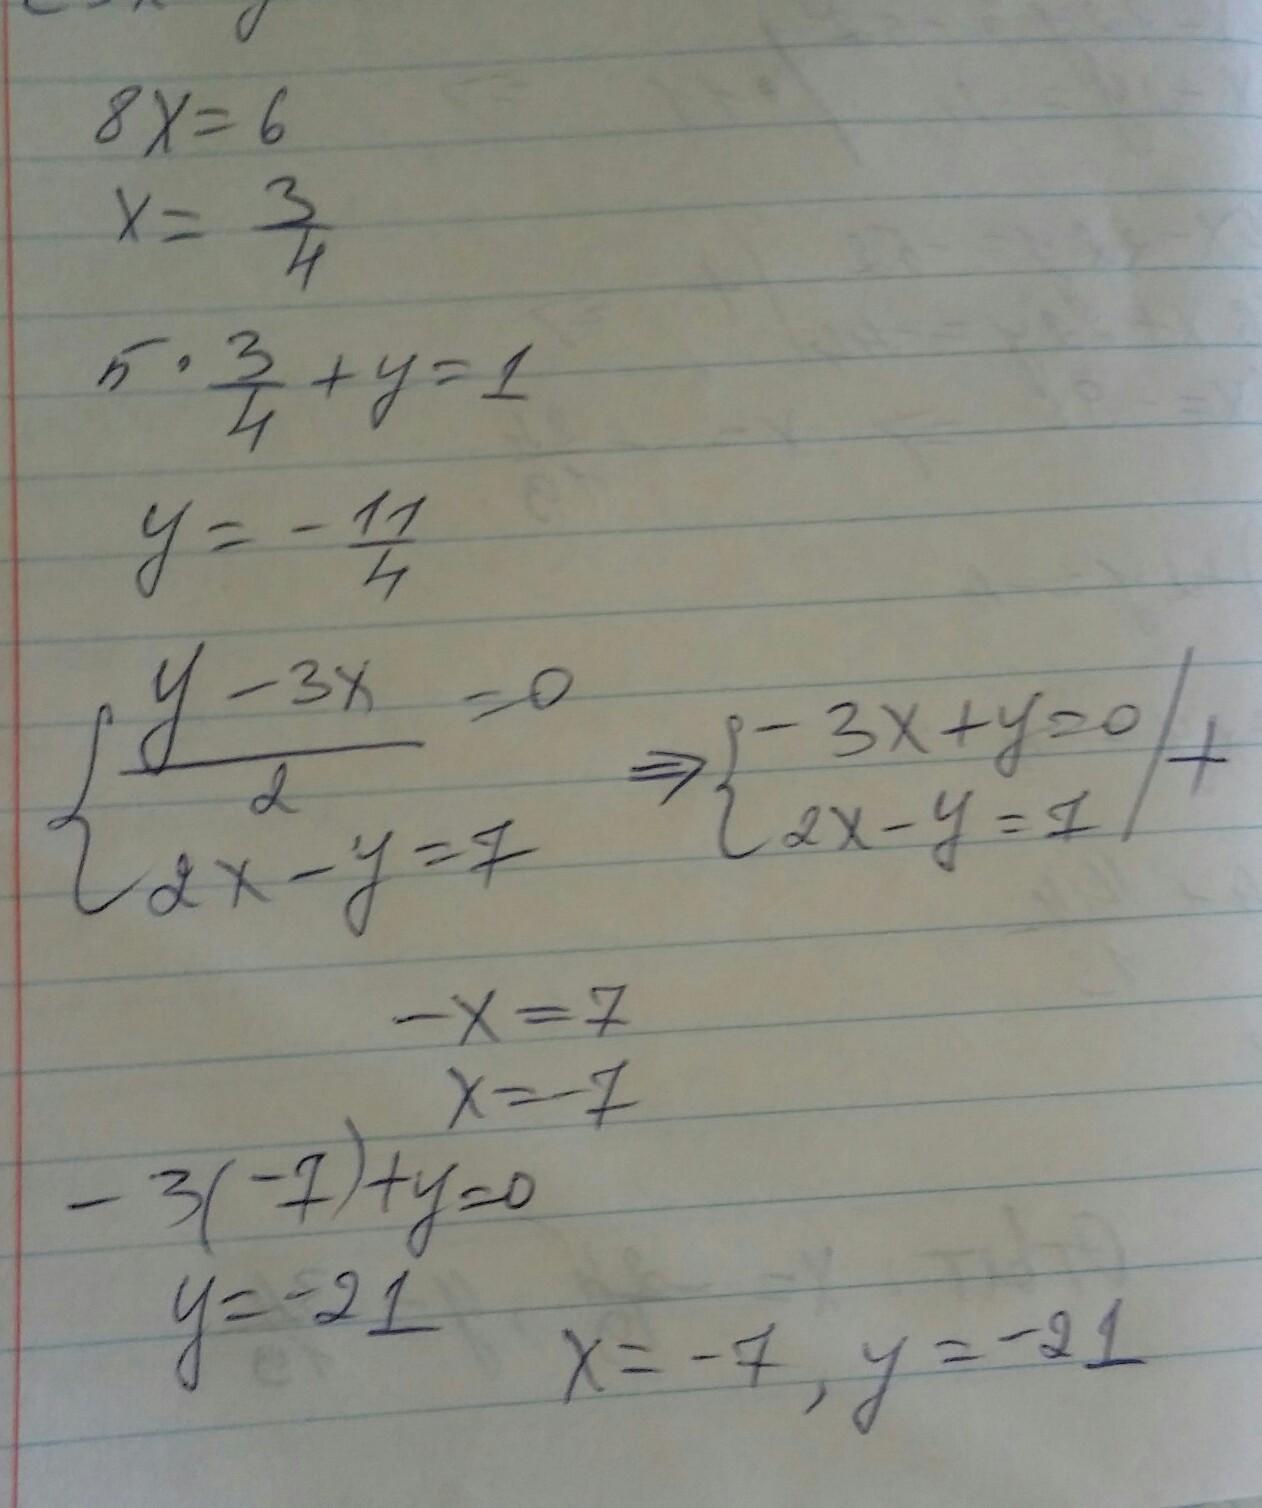 8x = 6
x = 3/4
5 · 3/4 + y = 1
y = - 11/4
{ (y - 3x)/2 = 0 ⇒ { -3x + y = 0 | +
2x - y = 7 2x - y = 7
-x = 7
x = -7
-3(-7) + y = 0
y = -21
x = -7, y = -21